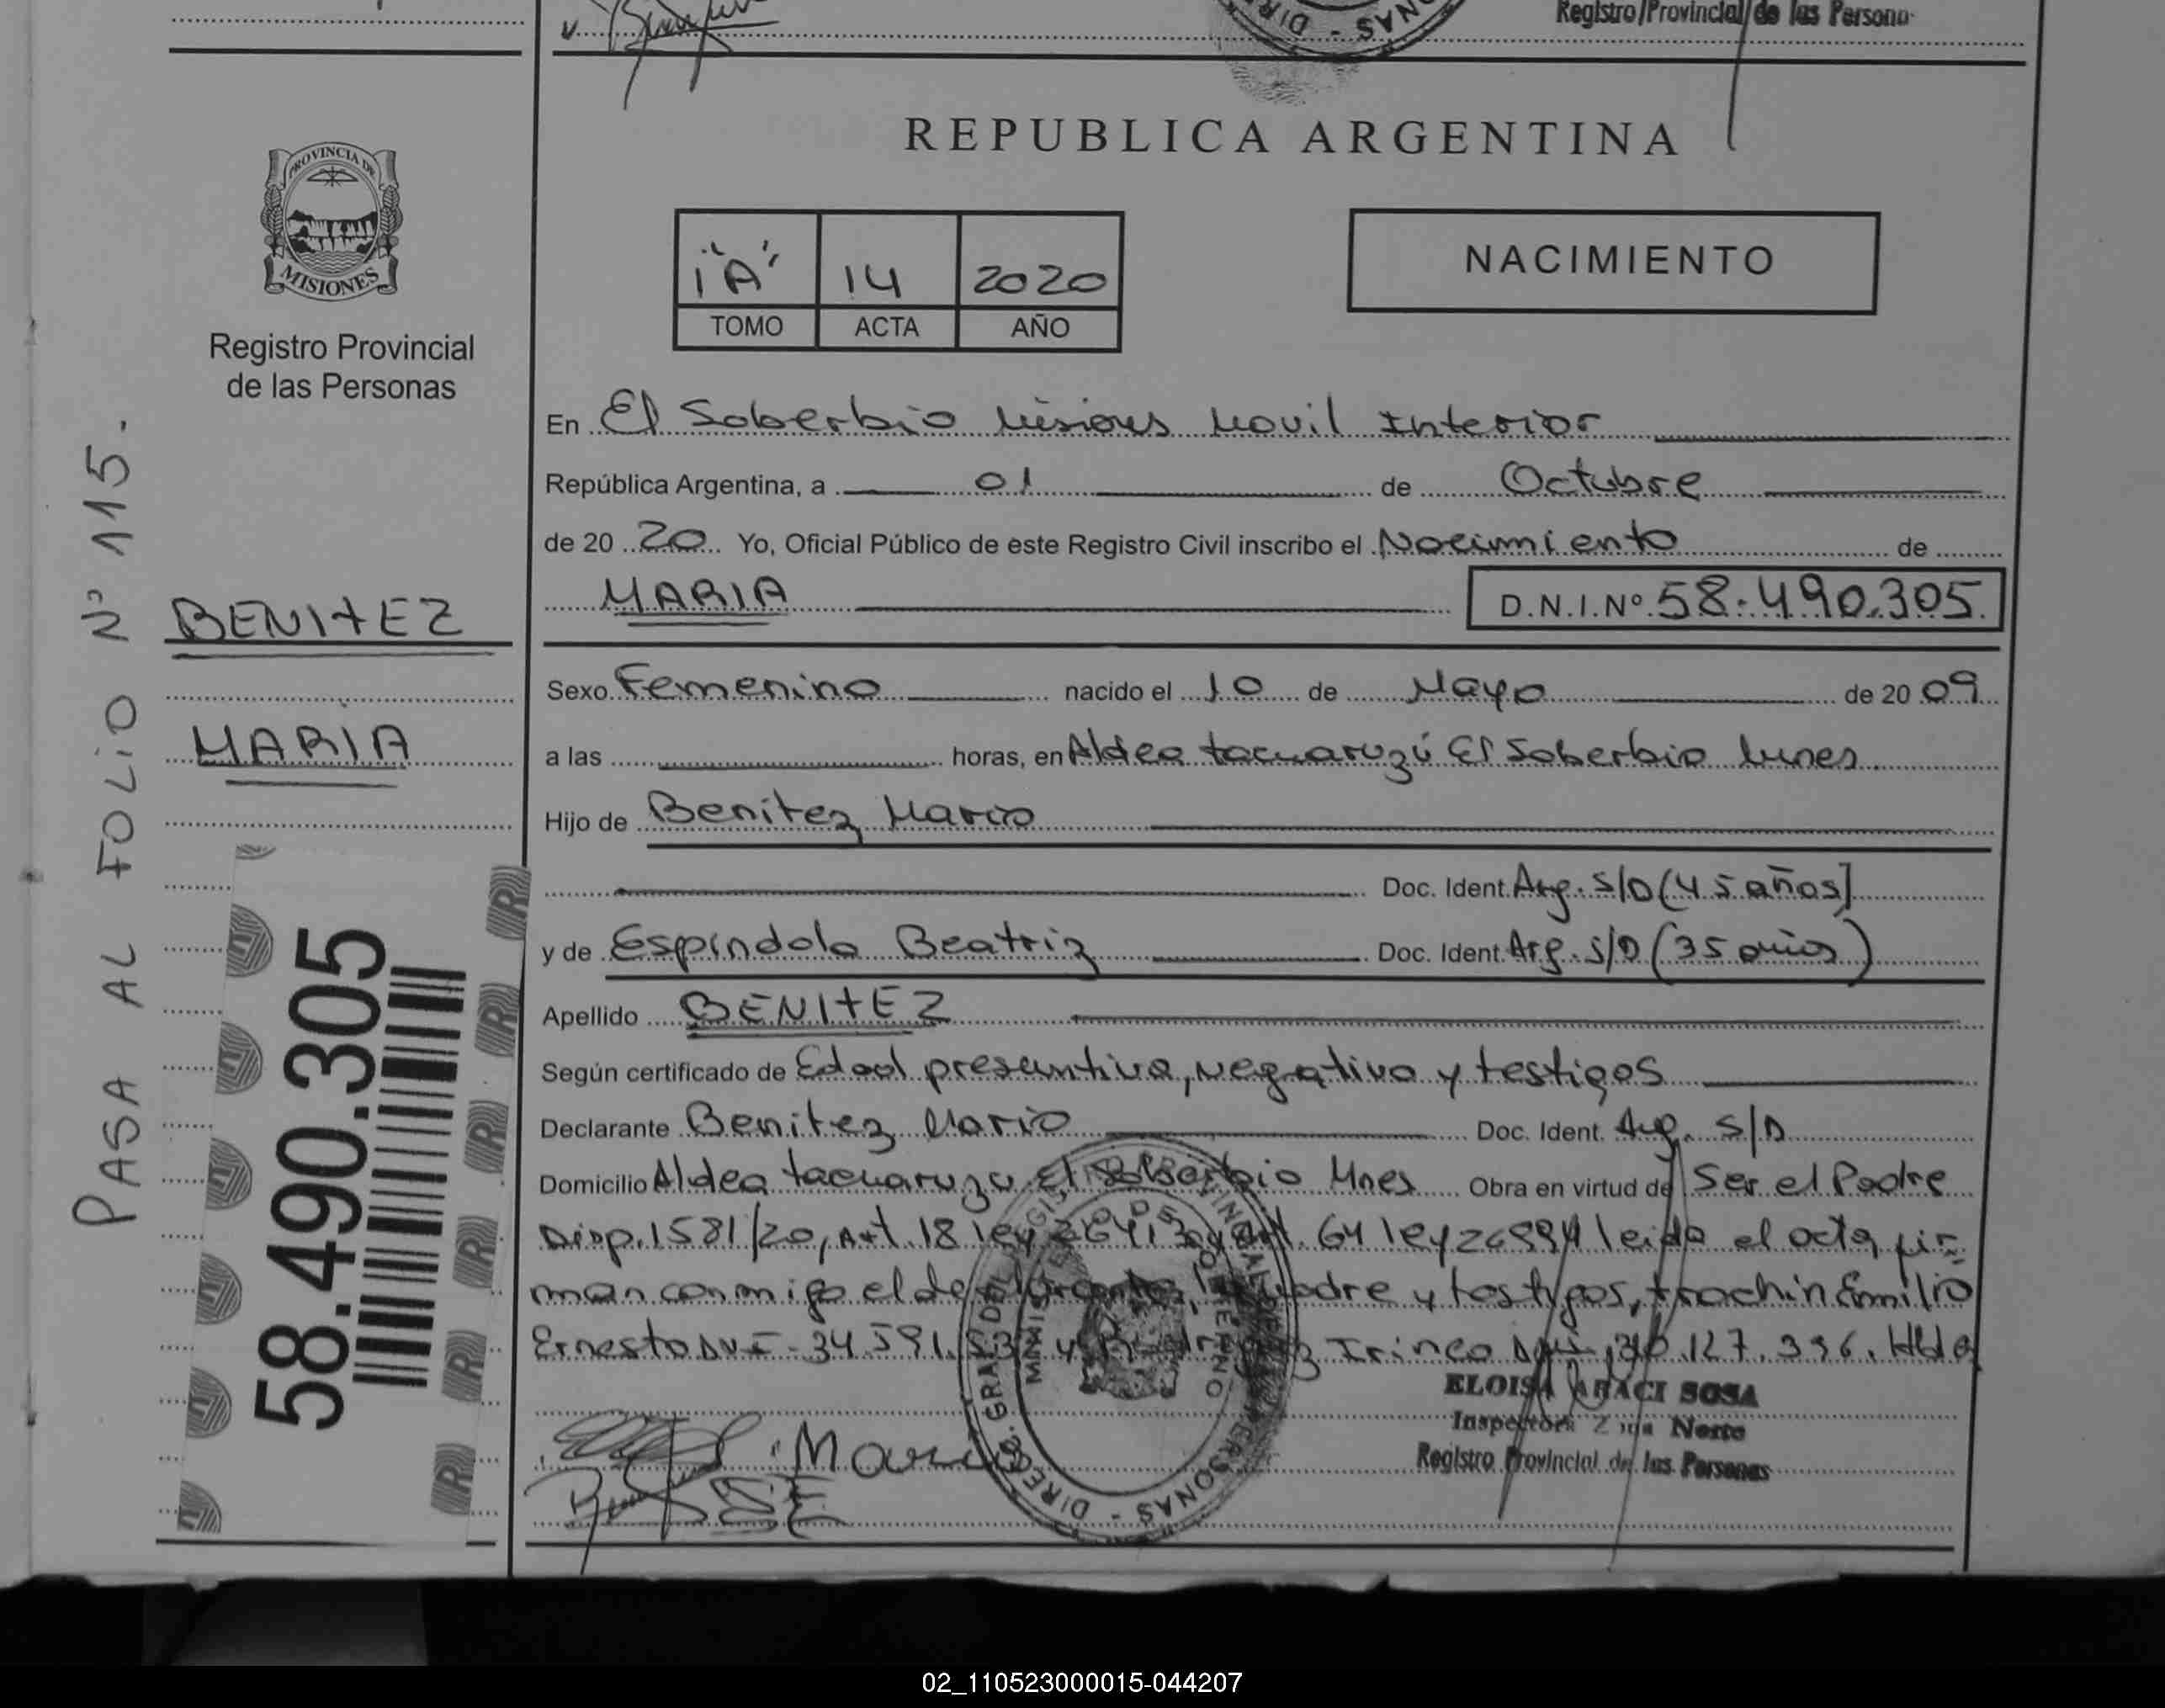 Registro Provincial de las Persona
REPUBLICA ARGENTINA
PROVINCIA DE
MISIONES
Registro Provincial
de las Personas
1"A" 14 2020
TOMO ACTA AÑO
NACIMIENTO
PASA AL FOLIO Nº 115.
BENITEZ
MARIA
58.490.305
En El Soberbio Misiones Movil Interior
República Argentina, a 01 de Octubre
de 20 20 Yo, Oficial Público de este Registro Civil inscribo el Nacimiento de
MARIA D.N.I.Nº 58.490.305
Sexo Femenino nacido el 10 de Mayo de 20 09
a las horas, en Aldea tacuaruzú El Soberbio
Hijo de Benitez Mario
Doc. Ident. Arg. S/D (45 años)
y de Espindola Beatriz Doc. Ident. Arg. S/D (35 años)
Apellido BENITEZ
Según certificado de Edad presuntiva, negativo y testigos
Declarante Benitez Mario Doc. Ident. Arg. S/D
Domicilio Aldea tacuaruzu El Soberbio Mnes Obra en virtud de Ser el Padre
Disp. 1581/20, Art. 18 ley 26413 y Art. 64 ley 26994 leida el acta fir
man conmigo el declarante, la madre y testigos, Emilio
Ernesto DNI 34.591. y Irineo DNI 127.396. Hda
ELOISA ARACI SOSA
Inspectora Zona Norte
Registro Provincial de las Personas
Mario
02_110523000015-044207